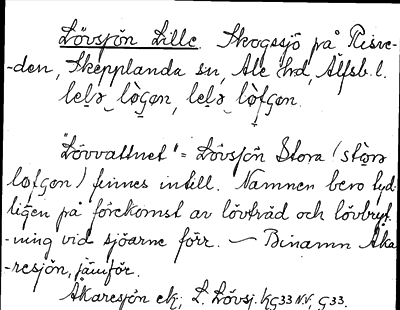 Lövsjön Lille. Skogssjö på Risve-
-den, Skepplanda sn, Ale hrd, Älfsb. l.
lelə lògən, lelə lòfgən.
"Lövvattnet" = Lövsjön Stora (stòrə
lofgən) finnes intill. Namnen bero tyd-
ligen på förekomst av lövträd och lövbryt-
-ning vid sjöarne förr. — Binamn Åka-
-resjön, jämför.
Åkaresjön ek; L. Lövsj. kg 33 N.V, g33.